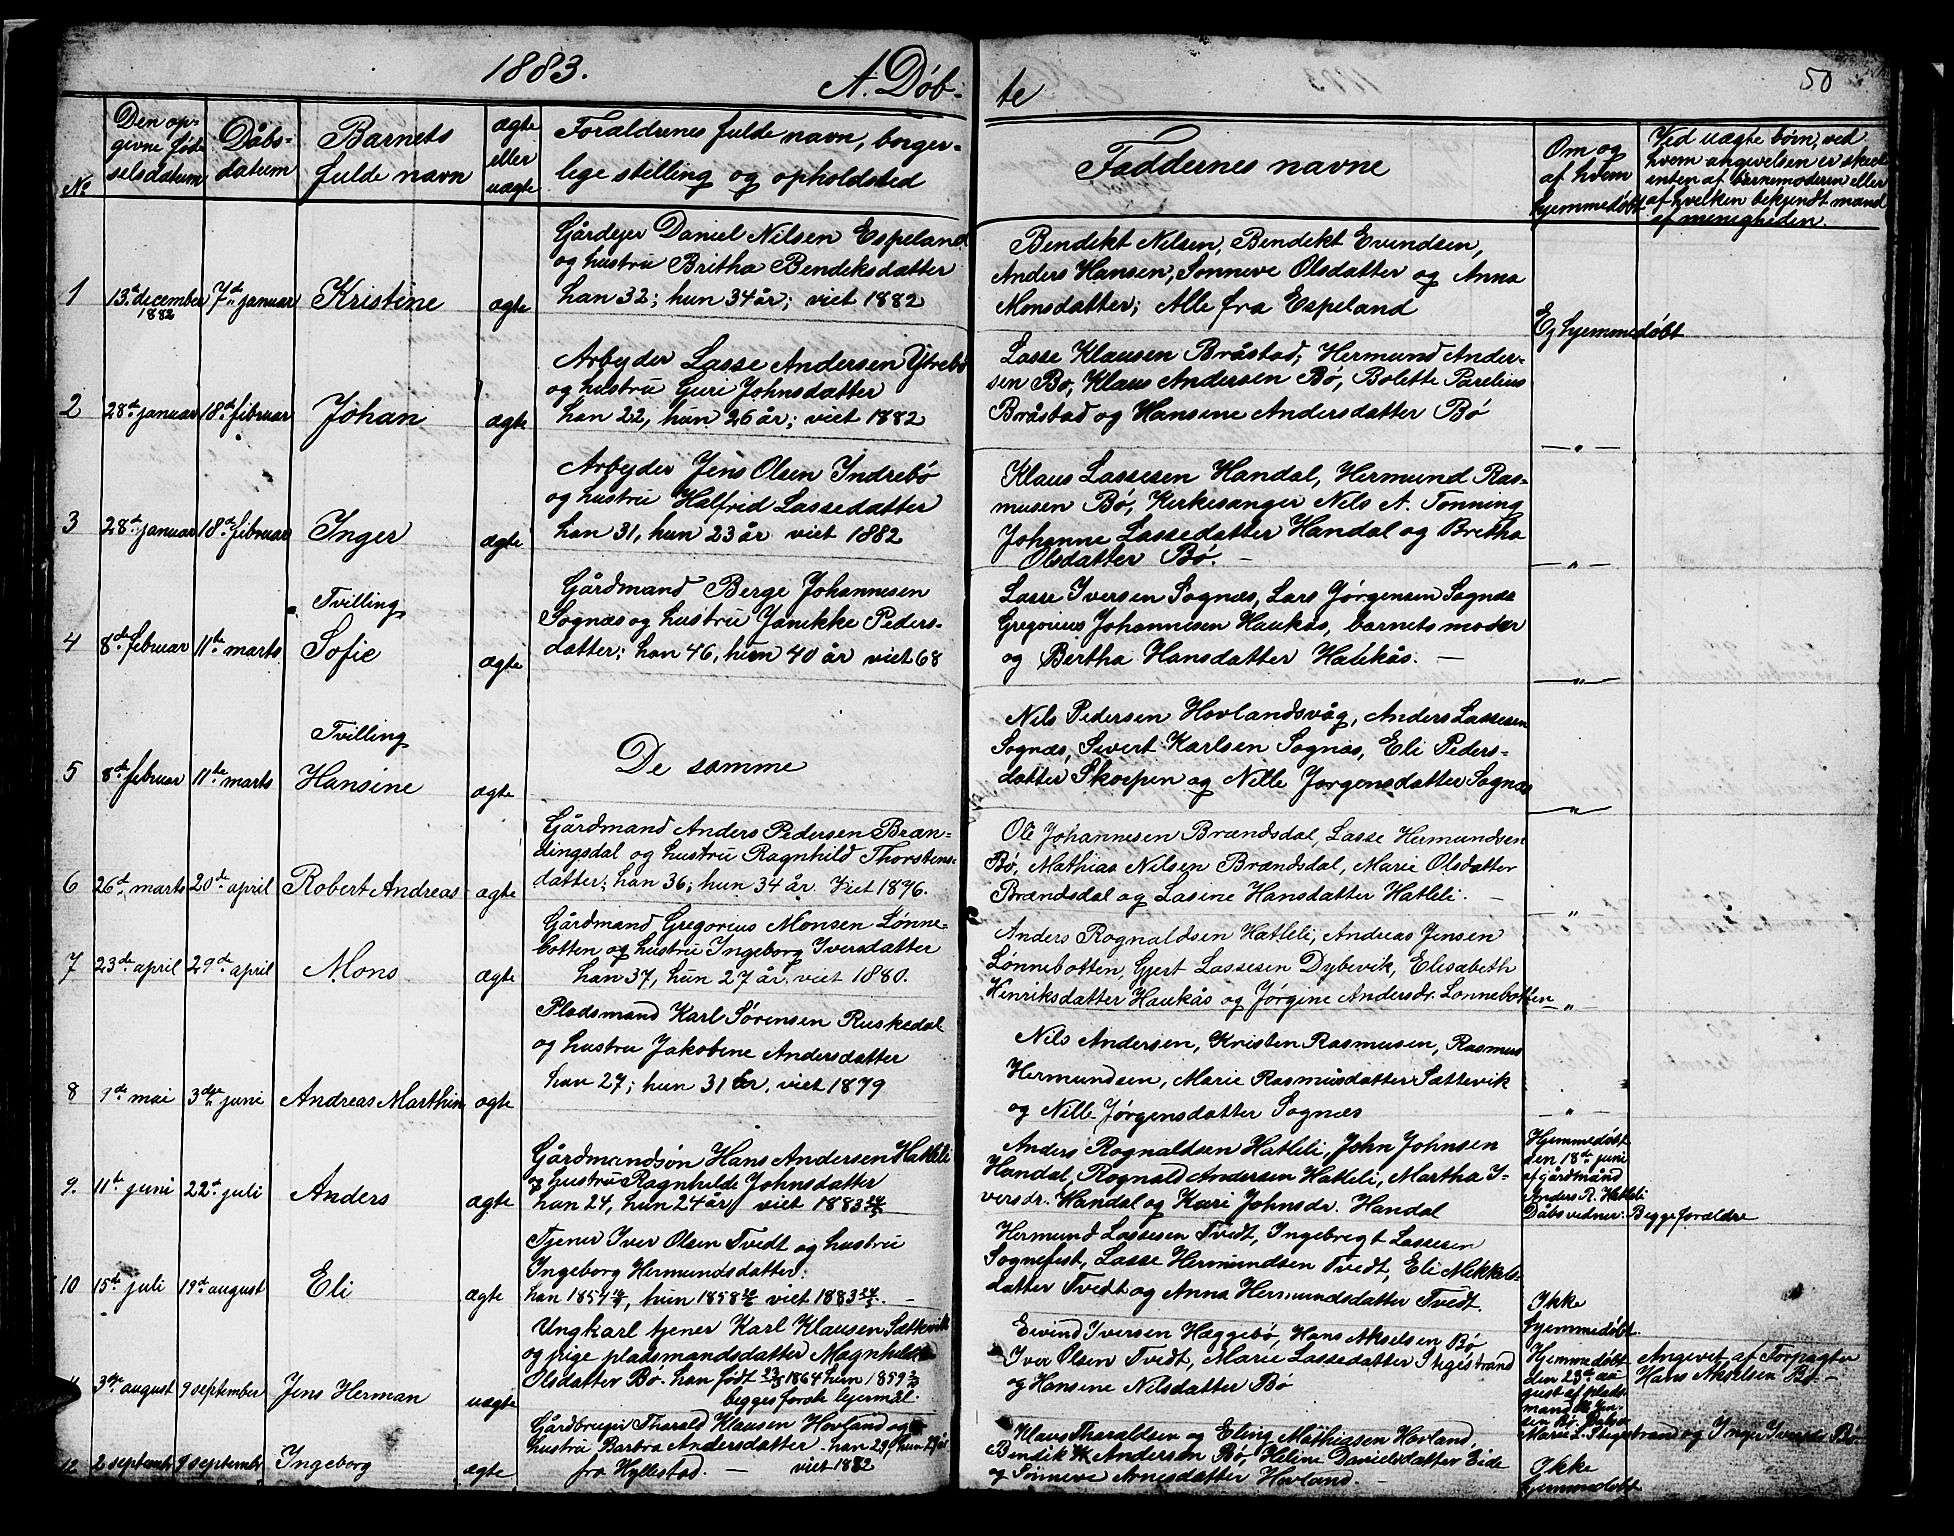 1883.
A. Døb-
te
50
No
Den op-
givne fød-
selsdatum
Dåbs-
datum
Barnets
fulde navn
ægte
eller
uægte
Forældrenes fulde navn, borger-
lige stilling og opholdsted
Faddernes navne
Om og
af hvem
hjemmedøbt
Ved uægte børn, ved
hvem angivelsen er skeet
enten af barnemoderen eller
af hvilken bekjendt mand
af menigheden.
1
13de december
1882
7de januar
Kristine
ægte
Gårdejer Daniel Nilsen Espeland
og hustru Britha Bendiksdatter
han 32; hun 34 år; viet 1882
Bendikt Nilsen, Bendikt Evindsen,
Anders Hansen, Sønneve Olsdatter og Anna
Monsdatter; Alle fra Espeland
Ej hjemmedøbt
2
28de januar
18de februar
Johan
ægte
Arbejder Lasse Andersen Ytrebø
og hustru Guri Johnsdatter
han 22, hun 26 år; viet 1882
Lasse Klausen Bråstad; Hermund Ander-
sen Bø, Klaus Andersen Bø, Bolette Parelius
Bråstad og Hansine Andersdatter Bø
— " —
3
28de januar
18de februar
Inger
ægte
Arbejder Jens Olsen Indrebø
og hustru Halfrid Lassedatter
han 31, hun 23 år viet 1882
Klaus Lassesen Handal, Hermund Ras-
musen Bø, Kirkesanger Nils A. Tonning
Johanne Lassedatter Handal og Bretha
Olsdatter Bø. —
— " —
4
8de februar
11te marts
Tvilling
Sofie
ægte
Gårdmand Berge Johannesen
Sognæs og hustru Janikke Peders-
datter; han 46, hun 40 år viet 68
Lasse Iversen Sognæs, Lars Jørgensen Sognæs
Gregorius Johannesen Haukås, barnets moder
og Bertha Hansdatter Haukås. —
— " —
5
8de februar
11te marts
Tvilling
Hansine
ægte
De samme
Nils Pedersen Hovlandsvåg, Anders Lassesen
Sognæs, Sivert Karlsen Sognæs, Eli Peders-
datter Skorpen og Nille Jørgensdatter Sognæs
— " —
6
26de marts
20de april
Robert Andreas
ægte
Gårdmand Anders Pedersen Bræn-
dingsdal og hustru Ragnhild Thorstens-
datter; han 36; hun 34 år. Viet 1876.
Ole Johannesen Brændsdal, Lasse Hermundsen
Bø, Mathias Nilsen Brændsdal, Marie Olsdatter
Brændsdal og Lasine Hansdatter Hatleli. —
— " —
7
23de april
29de april
Mons
ægte
Gårdmand Gregorius Monsen Lønne-
botten og hustru Ingeborg Iversdatter
han 37, hun 27 år. viet 1880.
Anders Rognaldsen Hatleli, Andreas Jensen
Lønnebotten, Gjert Lassesen Dybevik, Elisabeth
Henriksdatter Haukås og Jørgine Andersdr. Lønnebotten
— " —
8
7de mai
3dje juni
Andreas Marthin
ægte
Pladsmand Karl Sørensen Ruskedal
og hustru Jakobine Andersdatter
han 27; hun 31 år, viet 1879
Nils Andersen, Kristen Rasmusen, Rasmus
Hermundsen, Marie Rasmusdatter Sættevik
og Nille Jørgensdatter Sognæs
— " —
9.
11te juni
22de juli
Anders
ægte
Gårdmandsøn Hans Andersen Hatleli
og hustru Ragnhilde Johnsdatter
han 24, hun 24 år, viet 1883
Anders Rognaldsen Hatleli, John Johnsen
Handal, Rognald Andersen Hatleli, Martha I-
versdr. Handal og Kari Johnsdr. Handal
Hjemmedøbt
den 18de juni
af gårdmand
Anders R. Hatleli
Dåbsvidner: Begge forældre
10
15de juli
19de august
Eli
ægte
Tjener Iver Olsen Tvedt og hustru
Ingeborg Hermundsdatter:
han 1857, hun 1858 viet 1883 —
Hermund Lassesen Tvedt, Ingebregt Lassesen
Sognefest, Lasse Hermundsen Tvedt, Eli Mikkels-
datter Tvedt og Anna Hermundsdatter Tvedt.
Ikke
hjemmedøbt.
3dje august
9 september
Jens Herman
uægte
Ungkarl tjener Karl Klausen Sættevik
og pige pladsmandsdatter Magnhild
Olsdatter Bø. han født 1864 hun 1859
begges første lejermål.
Eivind Iversen Hæggebø, Hans Akselsen Bø
Iver Olsen Tvedt, Marie Lassedatter Stegistrand
og Hansine Nilsdatter Bø
Hjemmedøbt
den 23de au-
gust af plads-
mand
Marie L. Stegestrand og Inger
Angivet af Forpagter
Hans Akselsen Bø —
12
2 september
9 september
Ingeborg
ægte
Gårdbruger Tharald Klausen Hovland og
hustru Barbra Andersdatter han 29, hun
fra Hyllestad. — viet 1882
Klaus Tharaldsen og Eling Mathiassen Hovland,
Bendik Andersen Bø, Heline Danielsdatter Eide
og Sønneve Arnesdatter Hovland. —
Ikke
hjemmedøbt